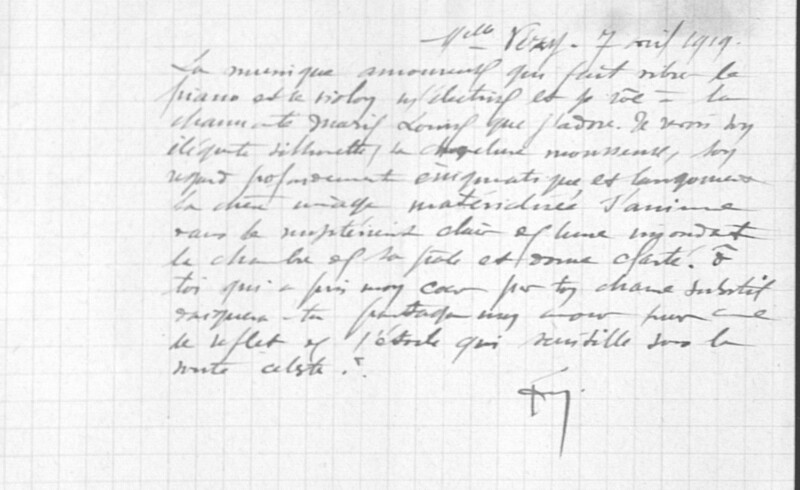 Melle Vezy - 7 avril 1919.
La musique amoureuse qui fait vibrer le
piano et le violon et je rêve à la
charmante Marie Louise que j'adore. Je vois son
élégante silhouette, sa chevelure mousseuse, son
regard profondément énigmatique et langoureux
la chère image matérialisée s'anime
dans le mystérieux clair de lune inondant
la chambre de sa pâle et douce clarté. Ô
toi qui a pris mon coeur par ton charme subtil
daigneras-tu partager mon amour pur comme
le reflet de l'étoile qui scintille sous la
voûte céleste.